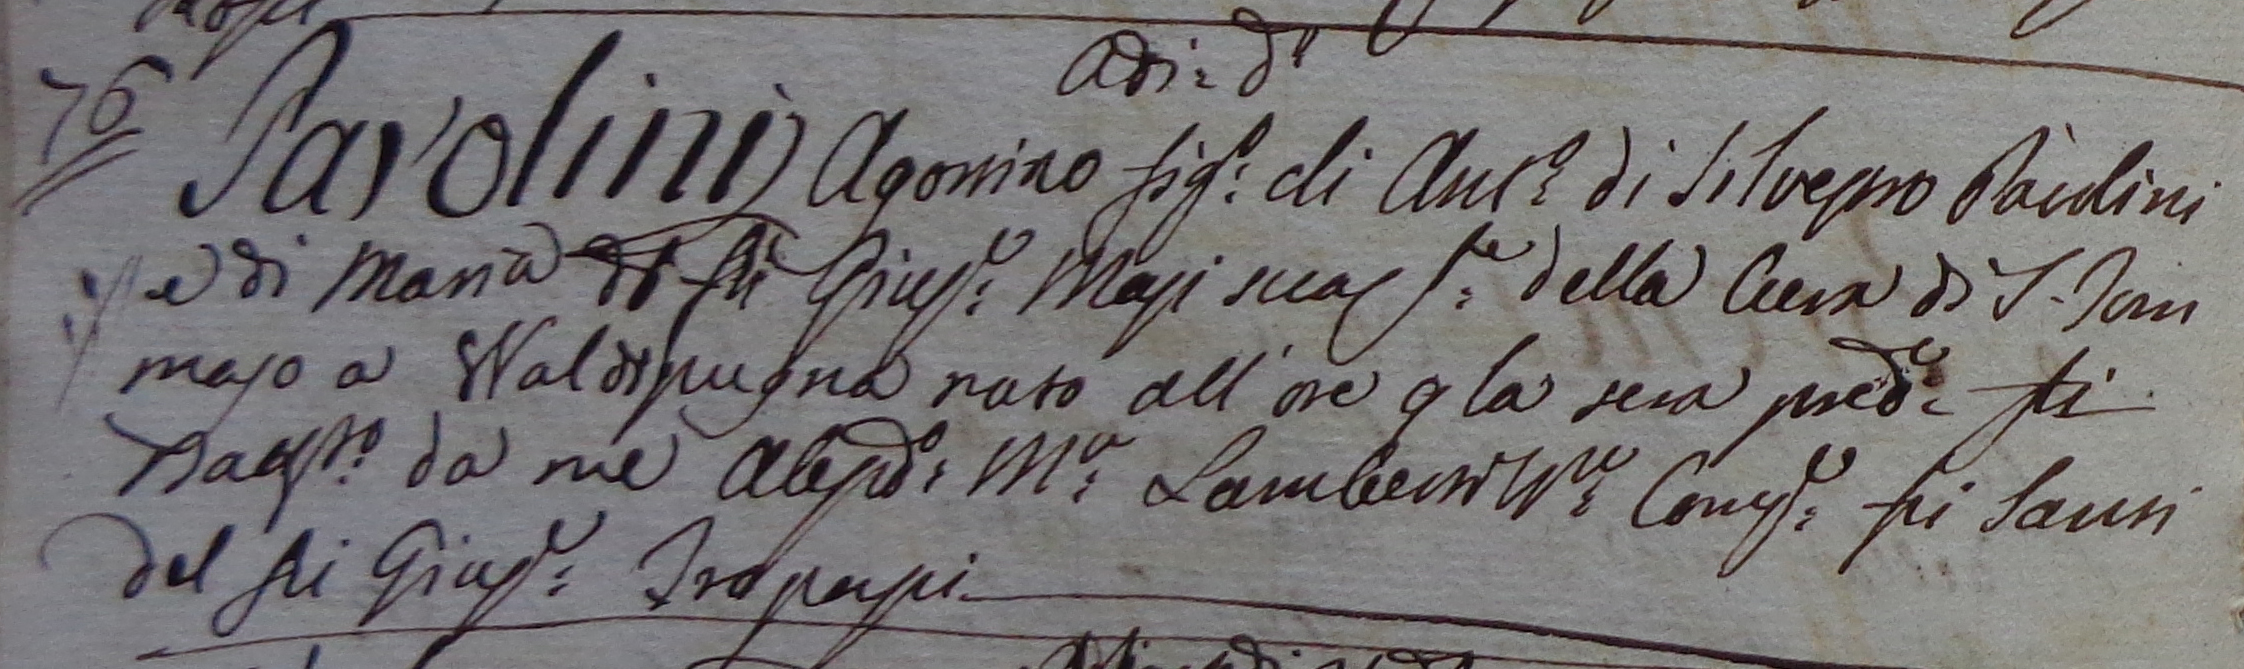 Adi: d°
76 Pavolini Agostino fig:° di Ant:° di Silvestro Paolini
e di Maria di fù Gius:e Masi sua C:te della Cura di S. Tom
maso a Valdipugna nato all'ore 9 la sera pred:a fù
Batt:° da me Aless:° M:a Lamberti Comp:e fù Santi
del fù Gius:e